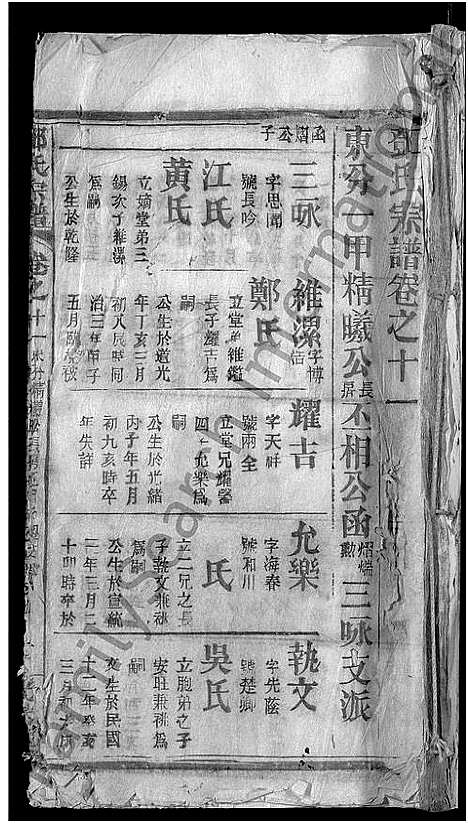 氏宗譜卷之十一
東分一甲精曦公長昇丕相公函熠燦勳三咏支派
函公子
三咏
字思聞
號長吟
江氏
黃氏
立嫡堂弟三
錫次子維濴
爲嗣
公生於乾隆
維濴字博古
鄭氏
立堂弟維鑑
長子耀吉爲
嗣
公生於道光
年丁亥三月
初八辰時同
治三年甲子
五月
耀吉
字天祥
號兩全
立堂兄耀馨
四子允樂爲
嗣
公生於光緒
丙子年五月
初九亥時卒
年失詳
允樂
字海春
號和川
氏
立二兄之長
子執文兼祧
爲嗣
公生於宣統
三年三月二
十卯時卒於
執文
字先蔭
號楚卿
吳氏
立胞弟之子
安旺兼祧爲
嗣
生於民國
十二年癸亥
三月初
氏宗譜
卷之十一
familysearch international